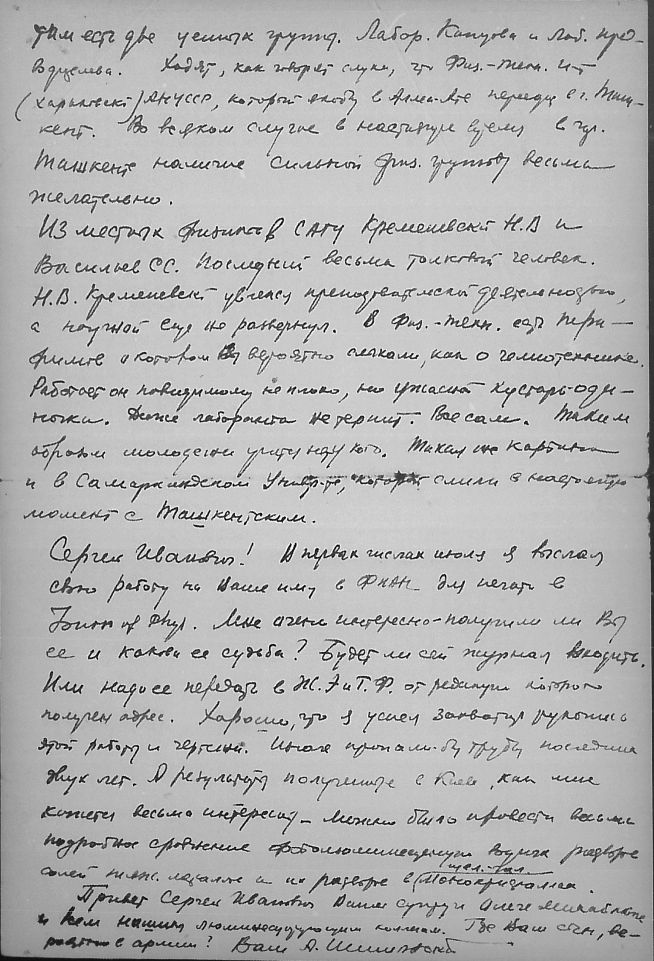 там есть две ценных группы. Лабор. Канцова и Лаб. Пред-
водителева. Ходят, как говорят слухи, что Физ.-техн. И-т
(Харьковский) АН УССР, который якобы в Алма-Ате переедет в г. Таш-
кент. Во всяком случае в настоящее время в гор.
Ташкенте наличие сильной физ. группы весьма
желательно.
Из местных физиков в САГУ Кременевский Н.В и
Васильев С.С. Последний весьма толковый человек.
Н.В. Кременевский увлекся преподавательской деятельностью,
а научной еще не развернул. В Физ.-техн. есть
о котором Вы вероятно слыхали, как о гелиотехнике.
Работает он повидимому не плохо, но ужасный кустарь-оди-
ночка. Даже лаборанта не терпит. Все сам. Таким
образом молодежи учить некого. Такая же картина
и в Самаркандском Универ-те, который слили в настоящий
момент с Ташкентским.
Сергей Иванович! В первых числах июля я выслал
свою работу на Ваше имя в ФИАН для печати в
Journ of Phys. Мне очень интересно - получили ли Вы
ее и какова ее судьба? Будет ли сей журнал выходить.
Или надо ее передать в Ж.Э и Т.Ф. от редакции которого
получен адрес. Хорошо, что я успел захватить рукопись
этой работы и чертежи. Иначе пропали бы труды последних
двух лет. А результаты полученные в Киеве, как мне
кажется весьма интересны - можно было провести весьма
подробное сравнение фотолюминесценции водных растворов
солей тяж. металлов и их растворов в щел.-гал. монокристаллах.
Привет Сергей Иванович Вашей супруге Ольге Михайловне
и всем нашим люминесцирующим коллегам. Где Ваш сын, ве-
роятно в армии? Ваш А.